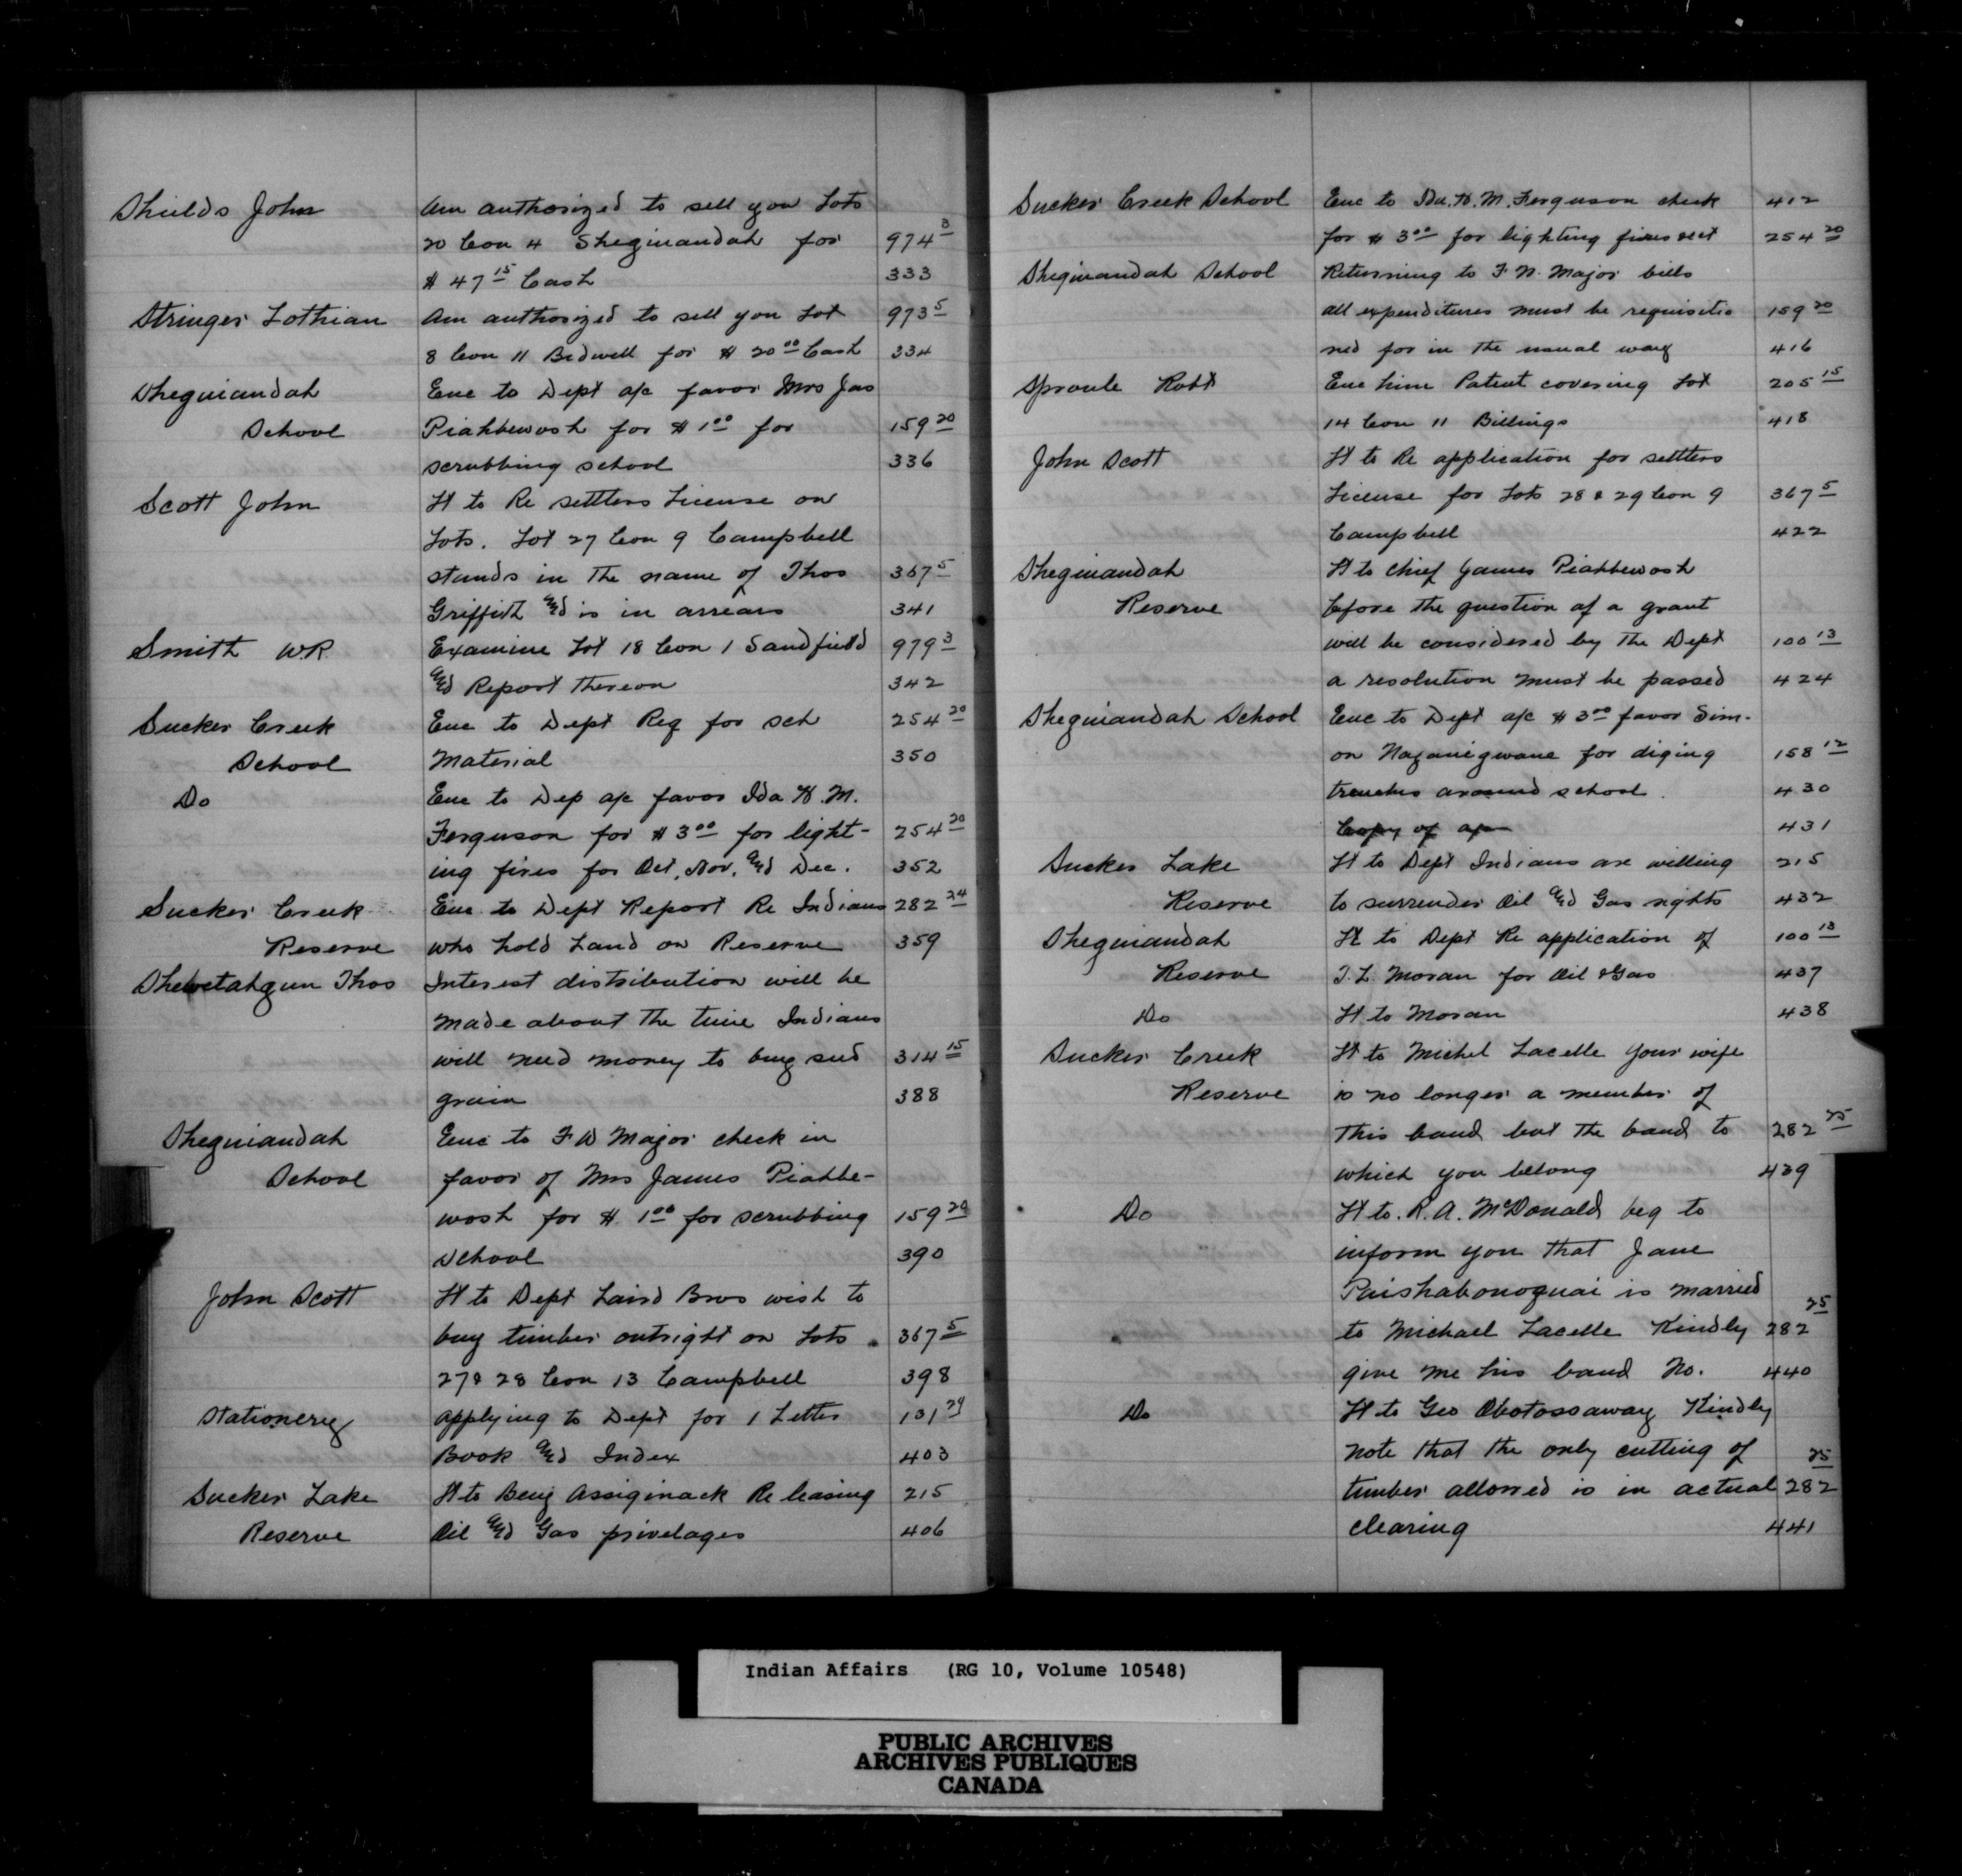 Shields John Am authorized to sell you Lots
20 Con 4 Sheguiandah for 974 3
$ 47 15 Cash 333
Stringer Lothian Am authorized to sell you Lot 973 5
8 Con 11 Bidwell for $ 20 00 Cash 334
Sheguiandah Enc to Dept a/c favor Mrs Jas
School Piahbewosh for $ 1 00 for 159 20
scrubbing school 336
Scott John Lt to Re settlers License on
Lots. Lot 27 Con 9 Campbell
stands in the name of Thos 367 5
Griffith and is in arrears 341
Smith W.R. Examine Lot 18 Con 1 Sandfield 979 3
and Report thereon 342
Sucker Creek Enc to Dept Req for sch 254 20
School Material 350
Do Enc to Dep a/c favor Ida H. M.
Ferguson for $ 3 00 for light- 254 20
ing fires for Oct, Nov, and Dec. 352
Sucker Creek Enc to Dept Report Re Indians 282 24
Reserve who hold Land on Reserve 359
Shewetahgun Thos Interest distribution will be
made about the time Indians
will need money to buy seed 314 15
grain 388
Sheguiandah Enc to F W Major check in
School favor of Mrs James Piahbe-
wosh for $ 1 00 for scrubbing 159 20
School 390
John Scott Lt to Dept Laird Bros wish to
buy timber outright on Lots 367 5
27 & 28 Con 13 Campbell 398
Stationery Applying to Dept for 1 Letter 131 29
Book and Index 403
Sucker Lake Lt to Benj Assiginack Re leasing 215
Reserve Oil and Gas privelages 406
Sucker Creek School Enc to Ida. H. M. Ferguson check 412
for $ 3 00 for lighting fires 254 20
Sheguiandah School Returning to F. W. Major bills
all expenditures must be requisitio 159 20
ned for in the usual way 416
Sproule Robt Enc him Patent covering Lot 205 15
14 Con 11 Billings 418
John Scott Lt to Re application for settlers
License for Lots 28 & 29 Con 9 367 5
Campbell 422
Sheguiandah Lt to Chief James Piahbewosh
Reserve before the question of a grant
will be considered by the Dept 100 13
a resolution must be passed 424
Sheguiandah School Enc to Dept a/c $ 3 00 favor Sim-
on for diging 158 12
trenches around school. 430
Copy of 431
Sucker Lake Lt to Dept Indians are willing 215
Reserve to surrender Oil and Gas rights 432
Sheguiandah Lt to Dept Re application of 100 13
Reserve T. L. Moran for Oil & Gas 437
Do Lt to Moran 438
Sucker Creek Lt to Michel Lacelle your wife
Reserve is no longer a member of
this band but the band to 282 25
which you belong 439
Do Lt to. R. A. McDonald beg to
inform you that Jane
Paishabonoquai is married
to Michael Lacelle Kindly 282 25
give me his band No. 440
Do Lt to Geo Obotossaway Kindly
note that the only cutting of
timber allowed is in actual 282 25
clearing 441
Indian Affairs (RG 10, Volume 10548)
PUBLIC ARCHIVES
ARCHIVES PUBLIQUES
CANADA